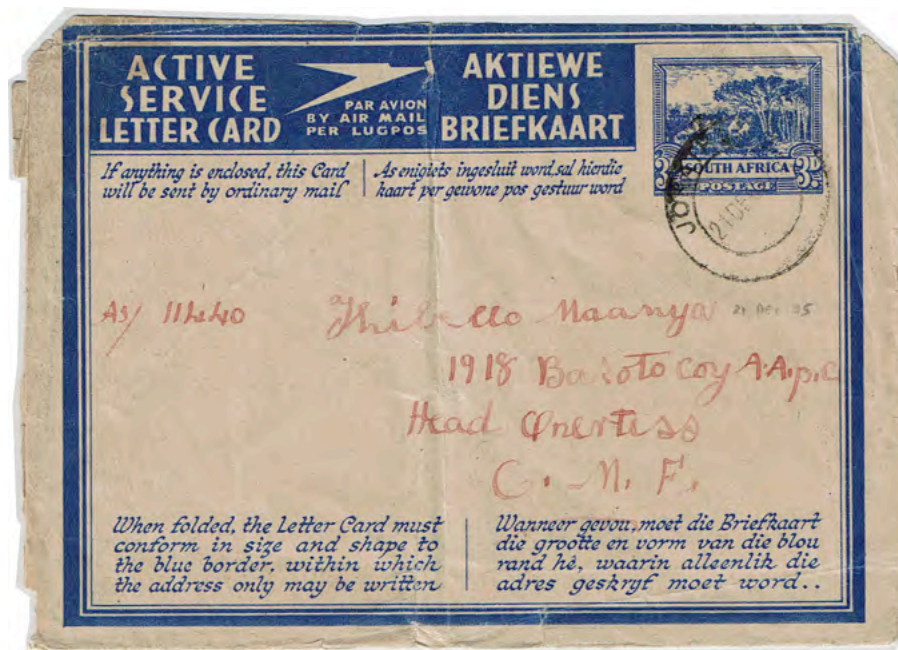 ACTIVE
SERVICE
LETTER CARD
PAR AVION
BY AIR MAIL
PER LUGPOS
AKTIEWE
DIENS
BRIEFKAART
If anything is enclosed, this Card
will be sent by ordinary mail
As enigiets ingesluit word, sal hierdie
kaart per gewone pos gestuur word
3D SOUTH AFRICA 3D
POSTAGE
21 DE
As/ 11440
Maanya
1918 Basoto Coy A.A.p.c
Head
C. M. F.
When folded, the Letter Card must
conform in size and shape to
the blue border, within which
the address only may be written
Wanneer gevou, moet die Briefkaart
die grootte en vorm van die blou
rand hê, waarin alleenlik die
adres geskryf moet word..